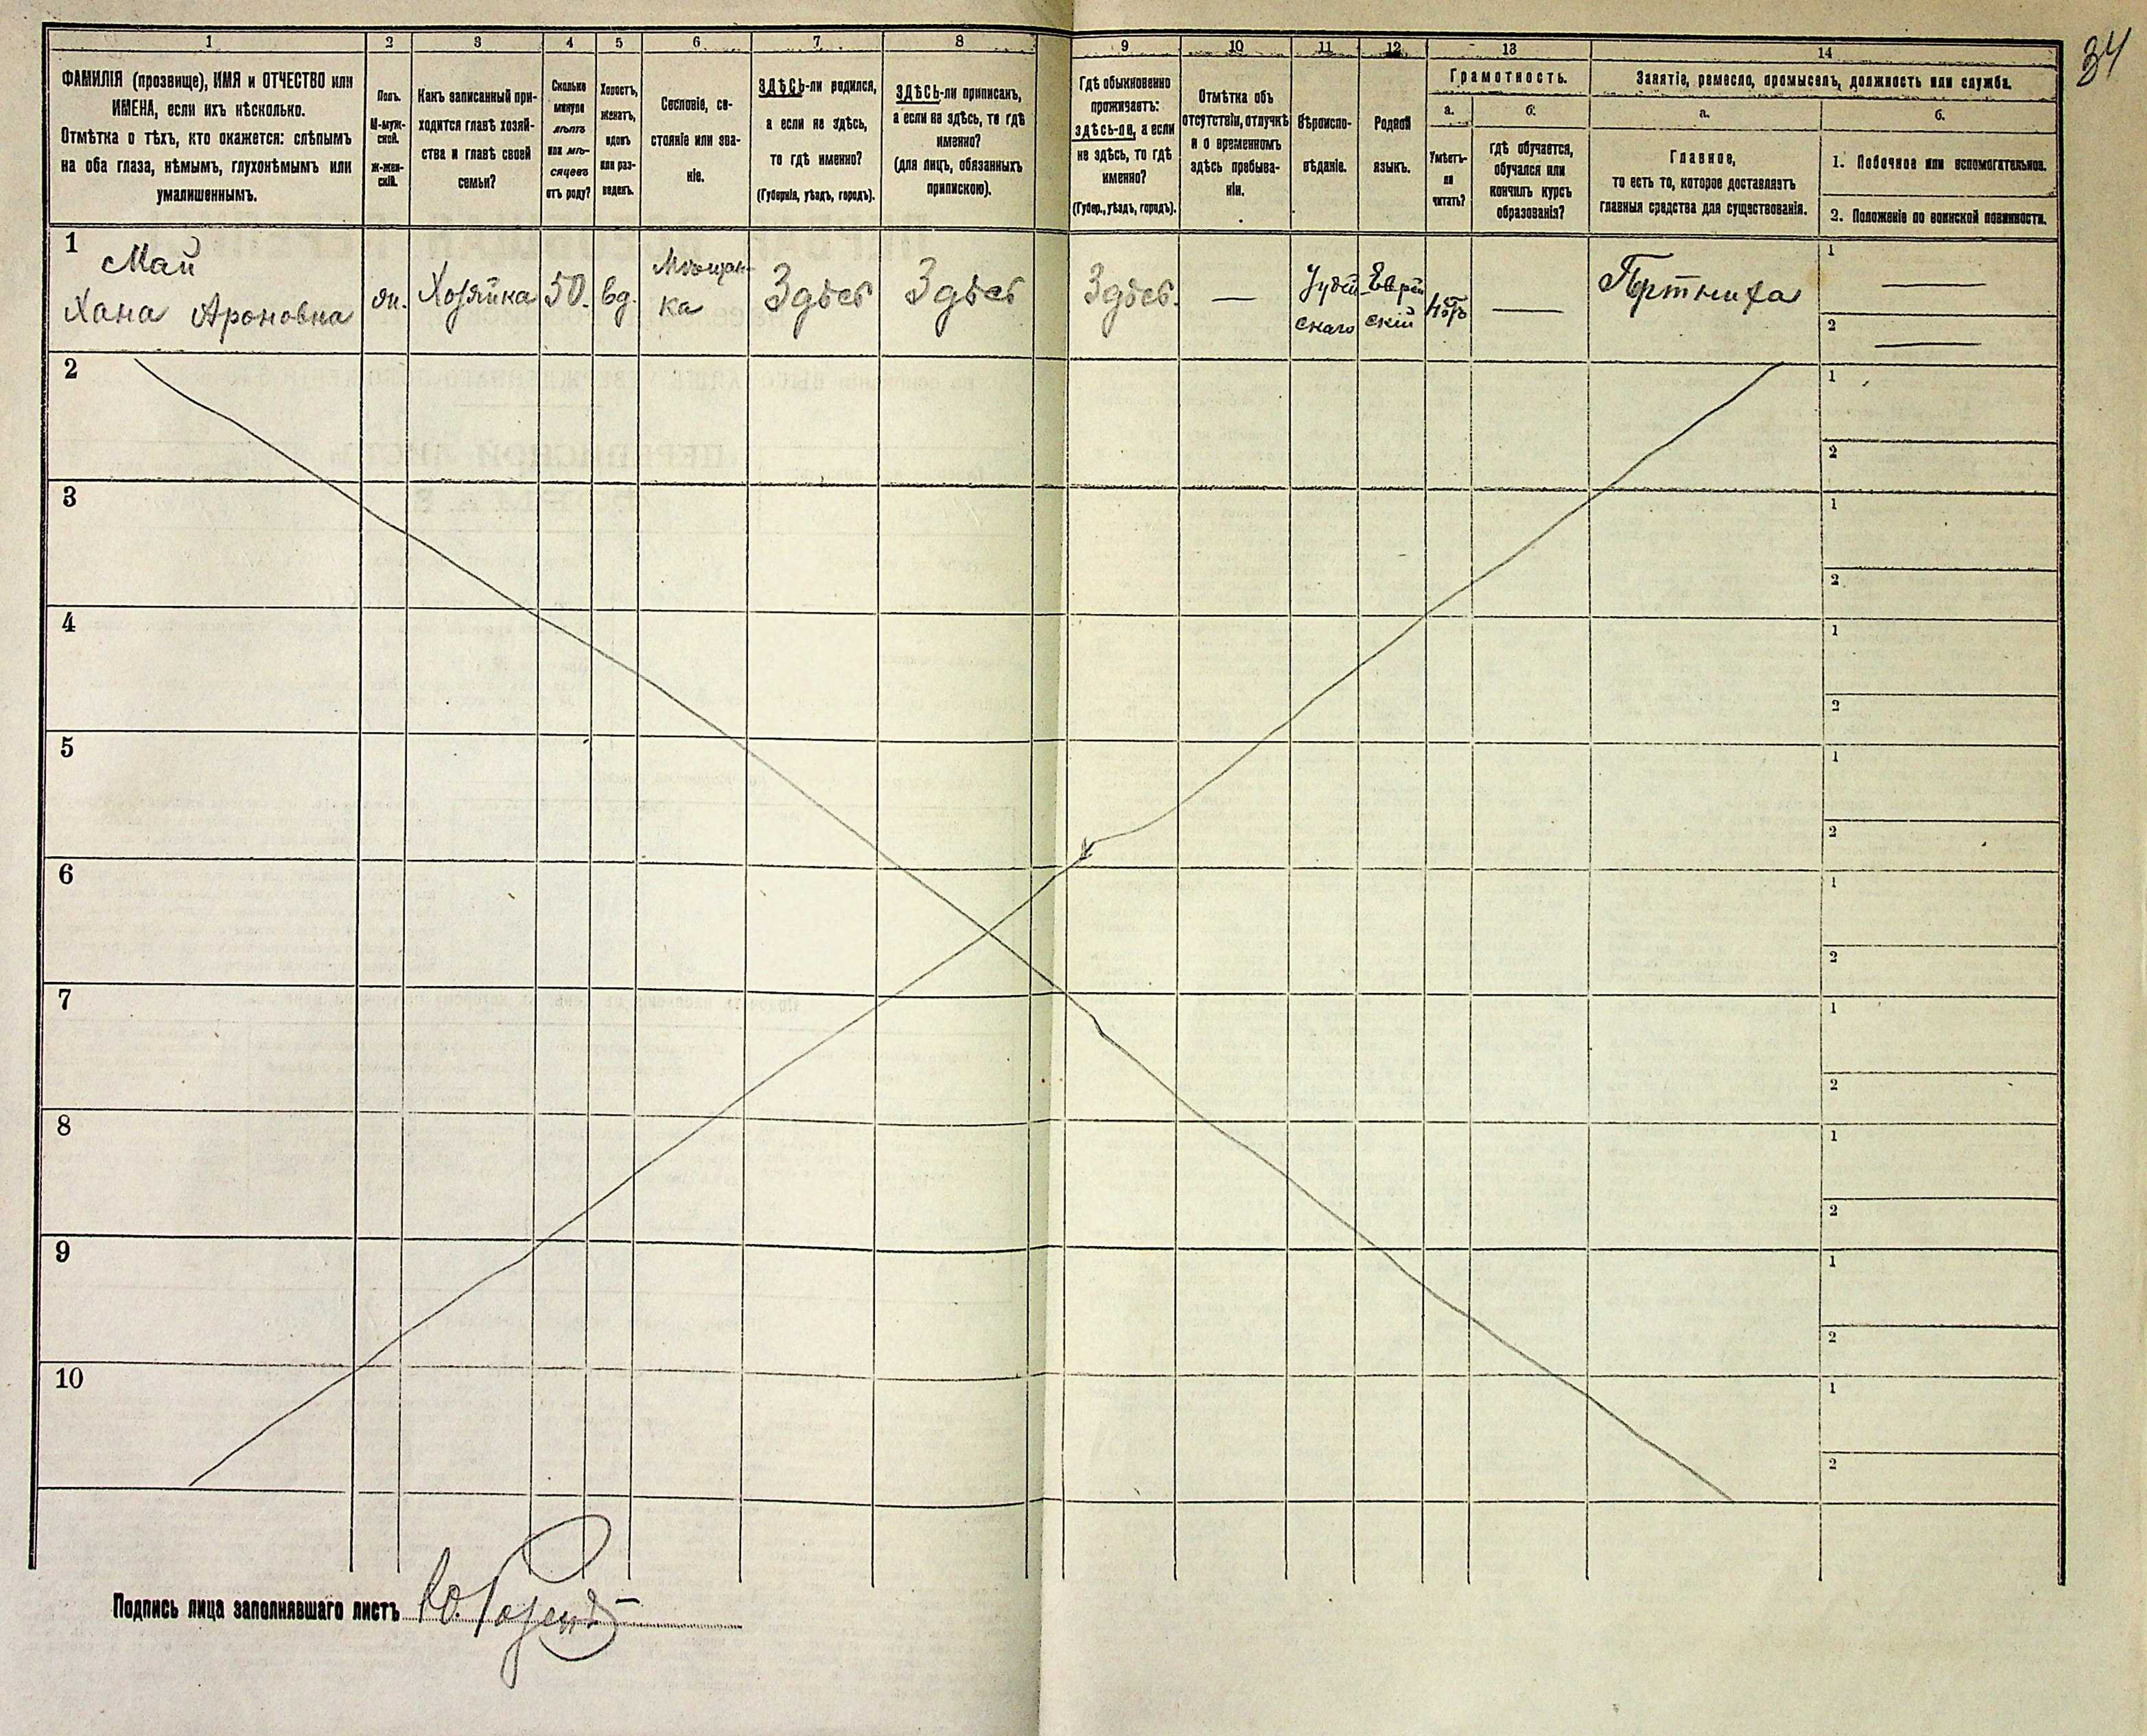 34
1 2 3 4 5 6 7 8 9 10 11 12 13 14
ФАМИЛІЯ (прозвище), ИМЯ и ОТЧЕСТВО или
ИМЕНА, если ихъ нѣсколько.
Отмѣтка о тѣхъ, кто окажется: слѣпымъ
на оба глаза, нѣмымъ, глухонѣмымъ или
умалишеннымъ.
Полъ.
М-муж-
ской.
Ж-жен-
скій.
Какъ записанный при-
ходится главѣ хозяй-
ства и главѣ своей
семьи?
Сколько
минуло
лѣтъ
или мѣ-
сяцевъ
отъ роду?
Холостъ,
женатъ,
вдовъ
или раз-
веденъ.
Сословіе, со-
стояніе или зва-
ніе.
ЗДѢСЬ-ли родился,
а если не здѣсь,
то гдѣ именно?
(Губернія, уѣздъ, городъ).
ЗДѢСЬ-ли приписанъ,
а если не здѣсь, то гдѣ
именно?
(для лицъ, обязанныхъ
припискою).
Гдѣ обыкновенно
проживаетъ:
здѣсь-ли, а если
не здѣсь, то гдѣ
именно?
(Губер., уѣздъ, городъ).
Отмѣтка объ
отсутствіи, отлучкѣ
и о временномъ
здѣсь пребыва-
ніи.
Вѣроиспо-
вѣданіе.
Родной
языкъ.
Грамотность.
а.
Умѣетъ-
ли
читать?
б.
гдѣ обучается,
обучался или
кончилъ курсъ
образованія?
Занятіе, ремесло, промыселъ, должность или служба.
а.
Главное,
то есть то, которое доставляетъ
главныя средства для существованія.
б.
1. Побочное или вспомогательное.
2. Положеніе по воинской повинности.
1
Май
Хана Ароновна
жн.
Хозяйка
50.
вд.
Мѣщан-
ка
Здѣсь
Здѣсь
Здѣсь.
—
Іудей
скаго
Еврей
скій
нѣтъ
—
Портниха
1 —
2 —
2
1
2
3
1
2
4
1
2
5
1
2
6
1
2
7
1
2
8
1
2
9
1
2
10
1
2
Подпись лица заполнявшаго листъ